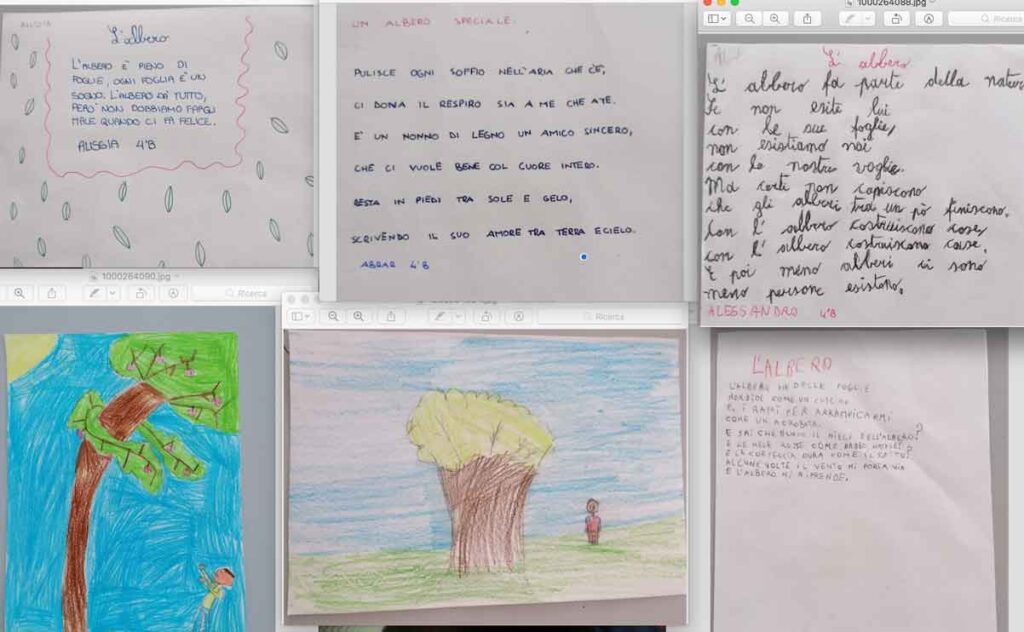 ALISSIA
L'albero
L'ALBERO È PIENO DI
FOGLIE, OGNI FOGLIA È UN
SOGNO. L'ALBERO DÀ TUTTO,
PERÒ NON DOBBIAMO FARGLI
MALE QUANDO CI FA FELICE.
ALISSIA 4°B
UN ALBERO SPECIALE.
PULISCE OGNI SOFFIO NELL'ARIA CHE C'È,
CI DONA IL RESPIRO SIA A ME CHE A TE.
E' UN NONNO DI LEGNO UN AMICO SINCERO,
CHE CI VUOLE BENE COL CUORE INTERO.
RESTA IN PIEDI TRA SOLE E GELO,
SCRIVENDO IL SUO AMORE TRA TERRA E CIELO.
ABRAR 4°B
1000264088.jpg
Ricerca
L'albero
L'albero fa parte della natura
Se non esite lui
con le sue foglie,
non esistiamo noi
con le nostre voglie.
Ma certi non capiscono
che gli alberi tra un pò finiscono.
Con l'albero costruiscono cose,
con l'albero costruiscono case.
E poi meno alberi ci sono
meno persone esistono.
ALESSANDRO 4°B
1000264090.jpg
Ricerca
Ricerca
L'ALBERO
L'ALBERO HA DELLE FOGLIE
MORBIDE COME UN CUSCINO
E I RAMI PER ARRAMPICARMI
COME UN ACROBATA.
E SAI CHE BUONO IL MIELE DELL'ALBERO?
E LE MELE ROSSE COME BABBO NATALE?
E LA CORTECCIA DURA COME IL
ALCUNE VOLTE IL VENTO MI PORTA VIA
E L'ALBERO MI RIPRENDE.